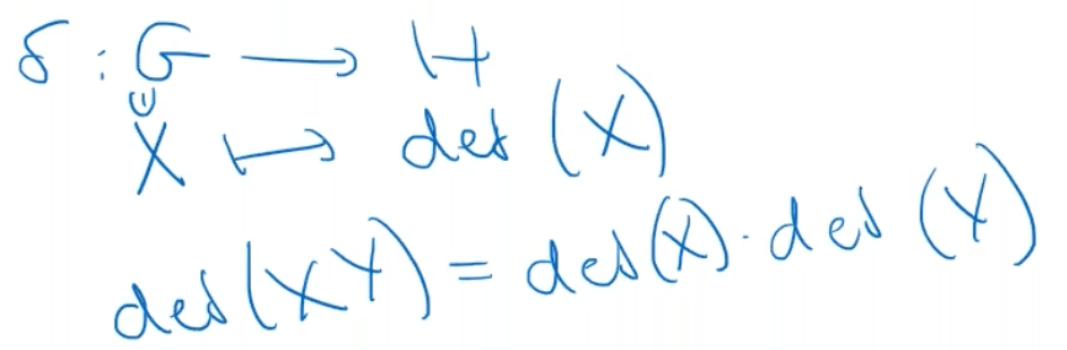 δ : G ⟶ H
∪
X ↦ det (X)
det(XY) = det(X) · det (Y)